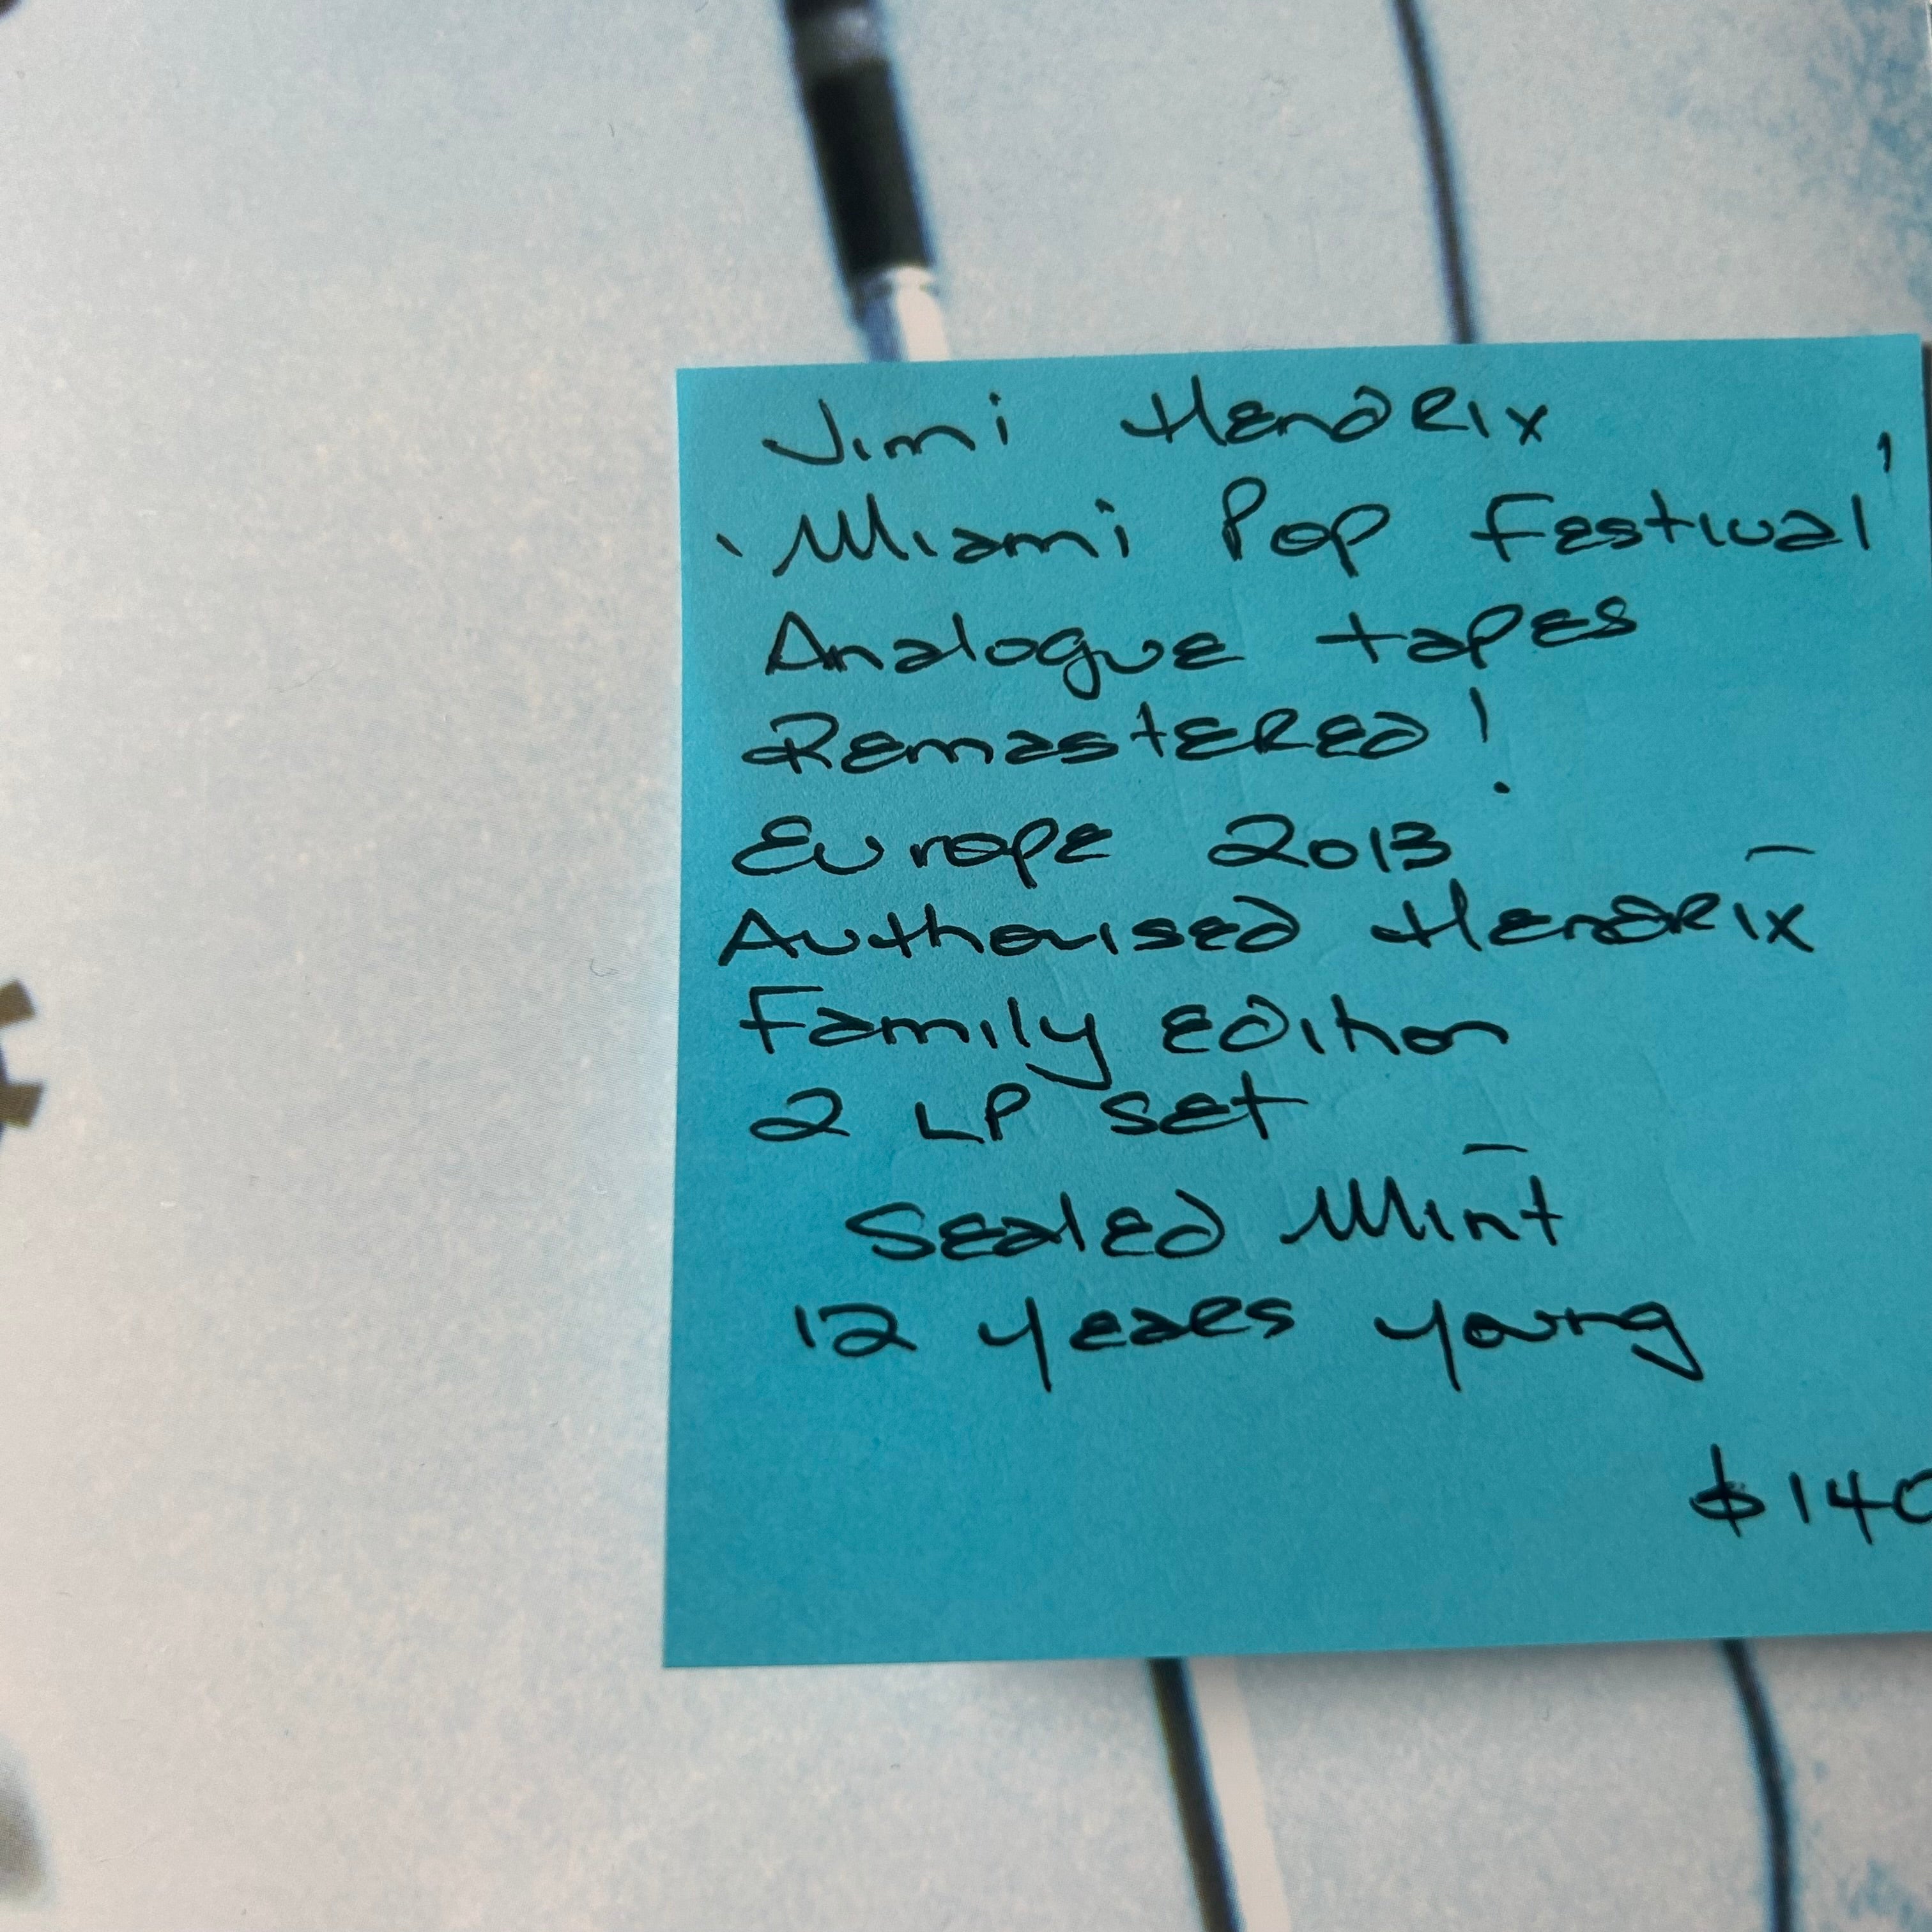 Jimi Hendrix
'Miami Pop Festival'
Analogue tapes
Remastered!
Europe 2013
Authorised Hendrix
Family Edition
2 LP set
Sealed Mint
12 years young
$140